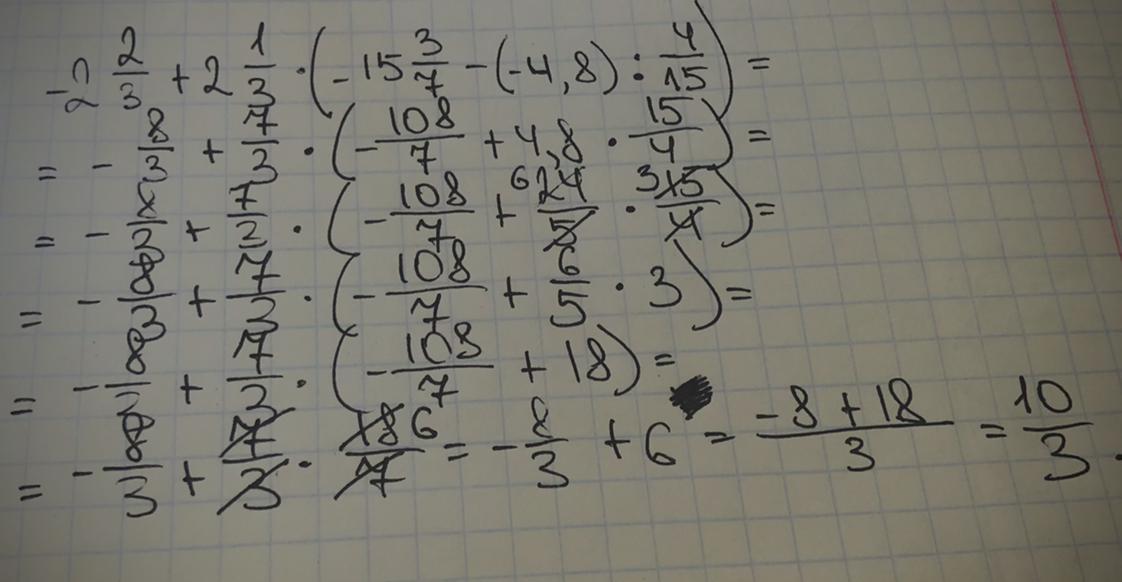 -2 2/3 + 2 1/3 · (-15 3/7 - (-4,8) : 4/15) =
= - 8/3 + 7/3 · (- 108/7 + 4,8 · 15/4) =
= - 8/3 + 7/3 · (- 108/7 + 6 24/5 · 3 15/4) =
= - 8/3 + 7/3 · (- 108/7 + 6/5 · 3) =
= - 8/3 + 7/3 · (- 108/7 + 18) =
= - 8/3 + 7/3 · 18 6/7 = - 8/3 + 6 = (-8 + 18)/3 = 10/3 .